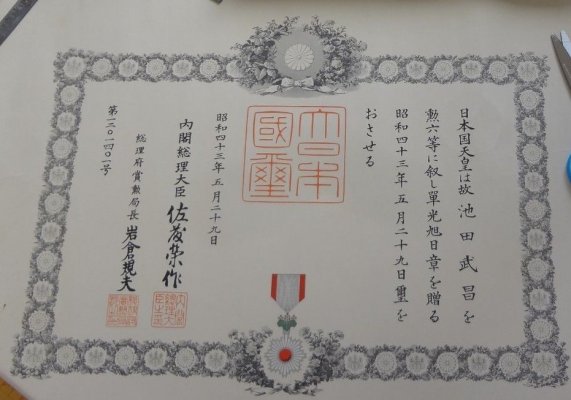 日本国天皇は故池田武昌を
勲六等に叙し単光旭日章を贈る
昭和四十三年五月二十九日璽を
おさせる
大日本
國璽
昭和四十三年五月二十九日
内閣総理大臣佐藤榮作
総理府賞勲局長岩倉規夫
第一三〇一四〇一号